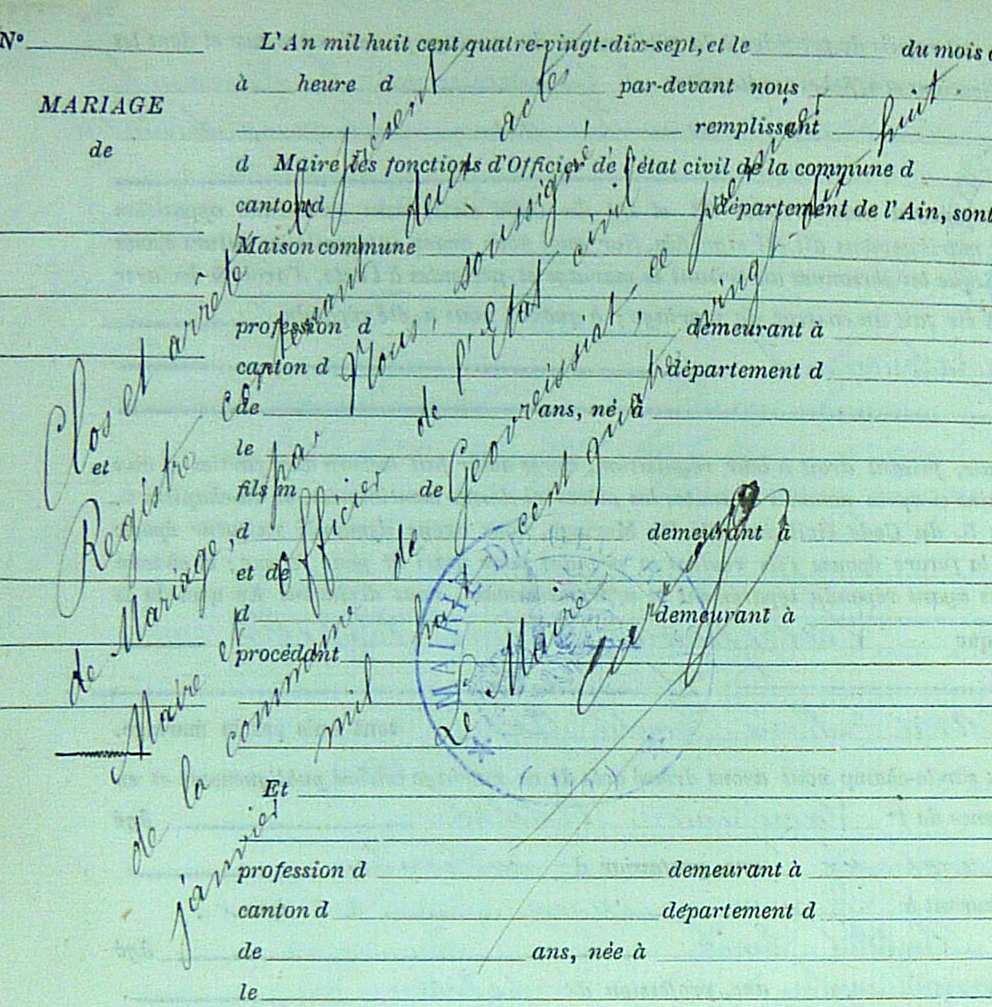 N°
MARIAGE
de
et
L'An mil huit cent quatre-vingt-dix-sept, et le du mois
à heure d par-devant nous
remplissant
d Maire les fonctions d'Officier de l'état civil de la commune d
canton d département de l'Ain, sont
Maison commune
profession d demeurant à
canton d département d
de ans, né à
le
fils m de
d demeurant à
et de
d demeurant à
procédant
Et
profession d demeurant à
canton d département d
de ans, née à
le
Clos et arrêté le présent
Registre contenant deux actes
de Mariage, par nous, soussigné
Maire et officier de l'Etat civil
de la commune de Geovreissiat ce premier
janvier mil huit cent quatre vingt-dix huit.
Le Maire
MAIRIE DE